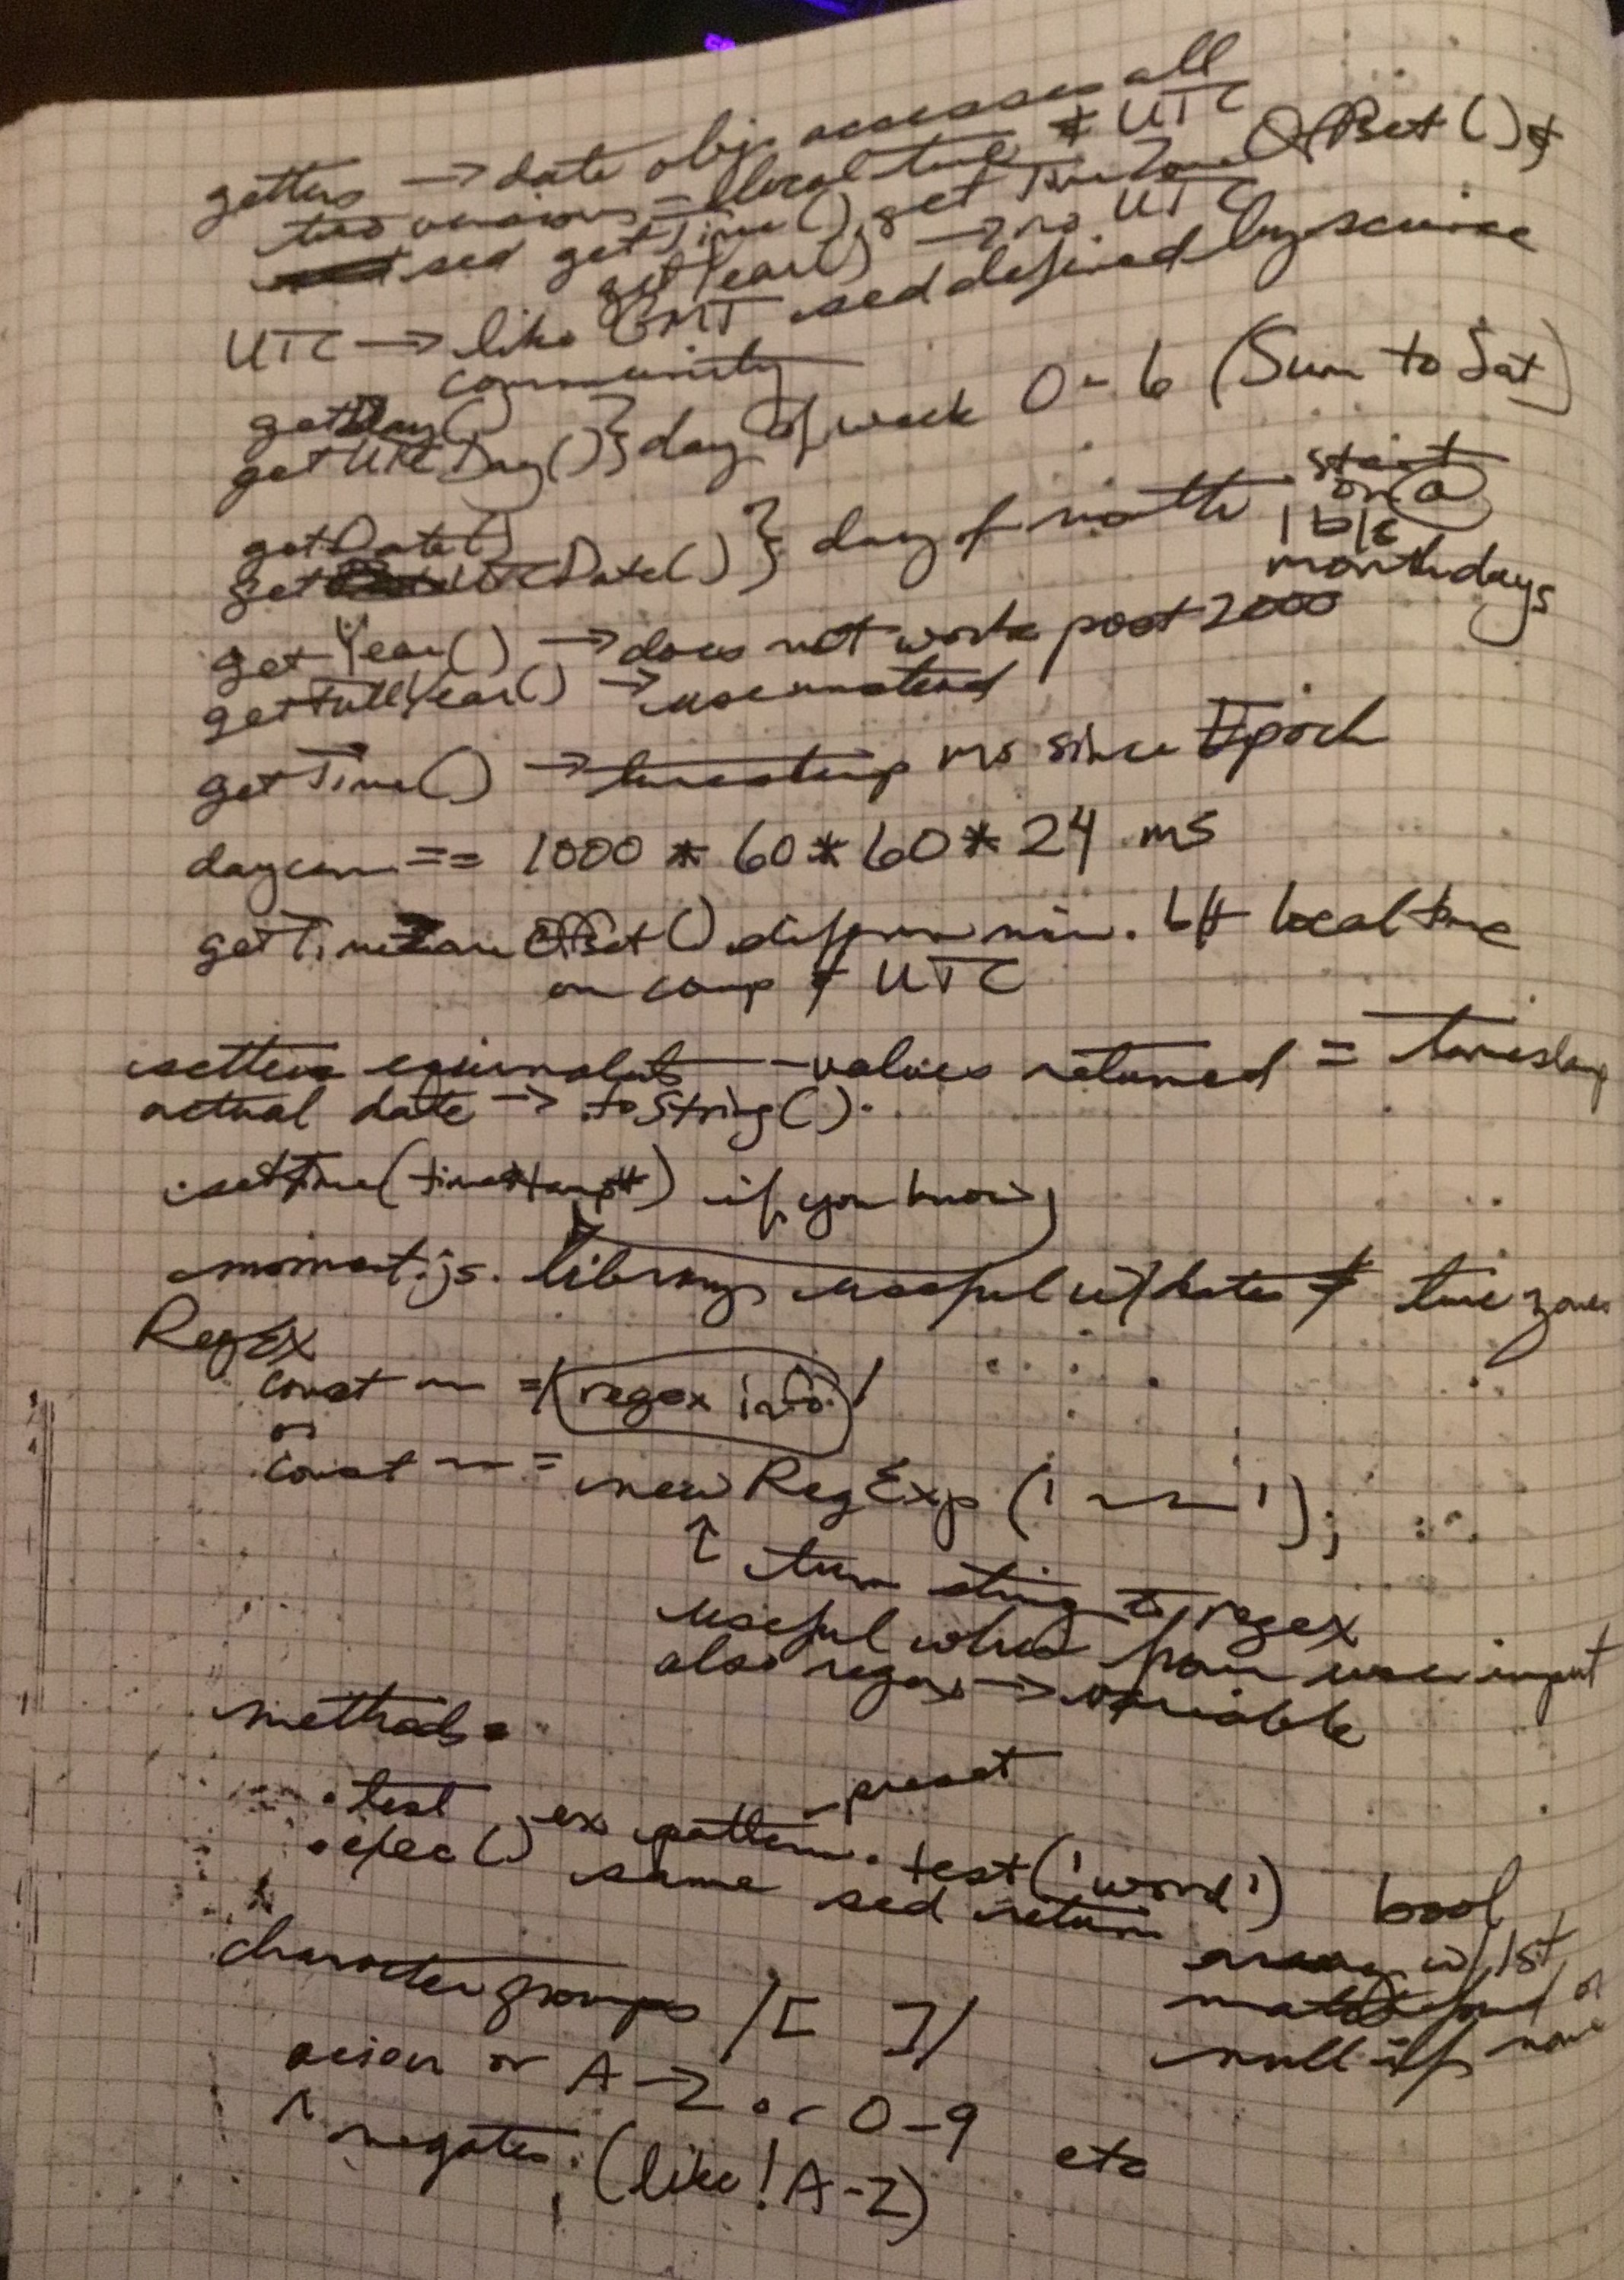 getters → date obj. accesses all
two versions - local time & UTC
sed getTime(), getTimeZoneOffset() &
getYear() → no UTC
UTC → like GMT sed defined by science
community
getDay()
getUTCDay() } day of week 0-6 (Sun to Sat)
getDate()
getUTCDate() } day of month
start
on a
1 b/c
month days
getYear() → does not work post 2000
getFullYear() → use instead
getTime() → timestamp ms since Epoch
== 1000 * 60 * 60 * 24 ms
getTimeZoneOffset() diff min. b/t local time
on comp & UTC
setters equivalents - values returned = timestamp
actual date → .toString().
.setTime(timestamp#) if you know
moment.js. library useful w/ dates & time zones
RegEx
const = / regex info /
or
const = new RegExp (' ');
↑ turn string to regex
useful when from user input
also regex → variable
methods
preset
.test ex pattern.test('word') bool
.exec() same sed return array w/ 1st
match found or
null if none
character groups /[ ]/
aeiou or A-Z or 0-9 etc
^ negates (like !A-Z)